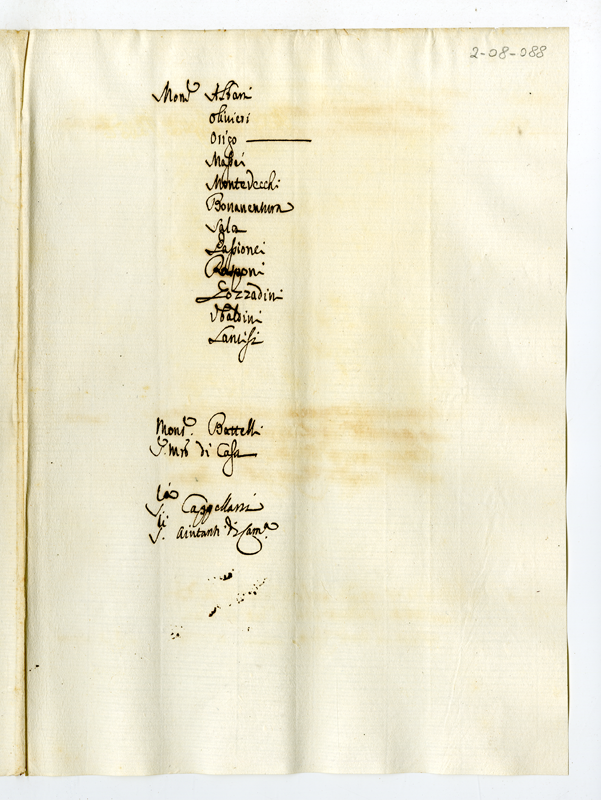 2-08-088
Mons.r Albani
Olivieri
Origo
Massei
Montevecchi
Bonaventura
Sala
Passionei
Rasponi
Gozzadini
Ubaldini
Lancisi
Mons.r Battelli
S. Mro di Casa
Cappellani
S. Aiutanti di Cam.a